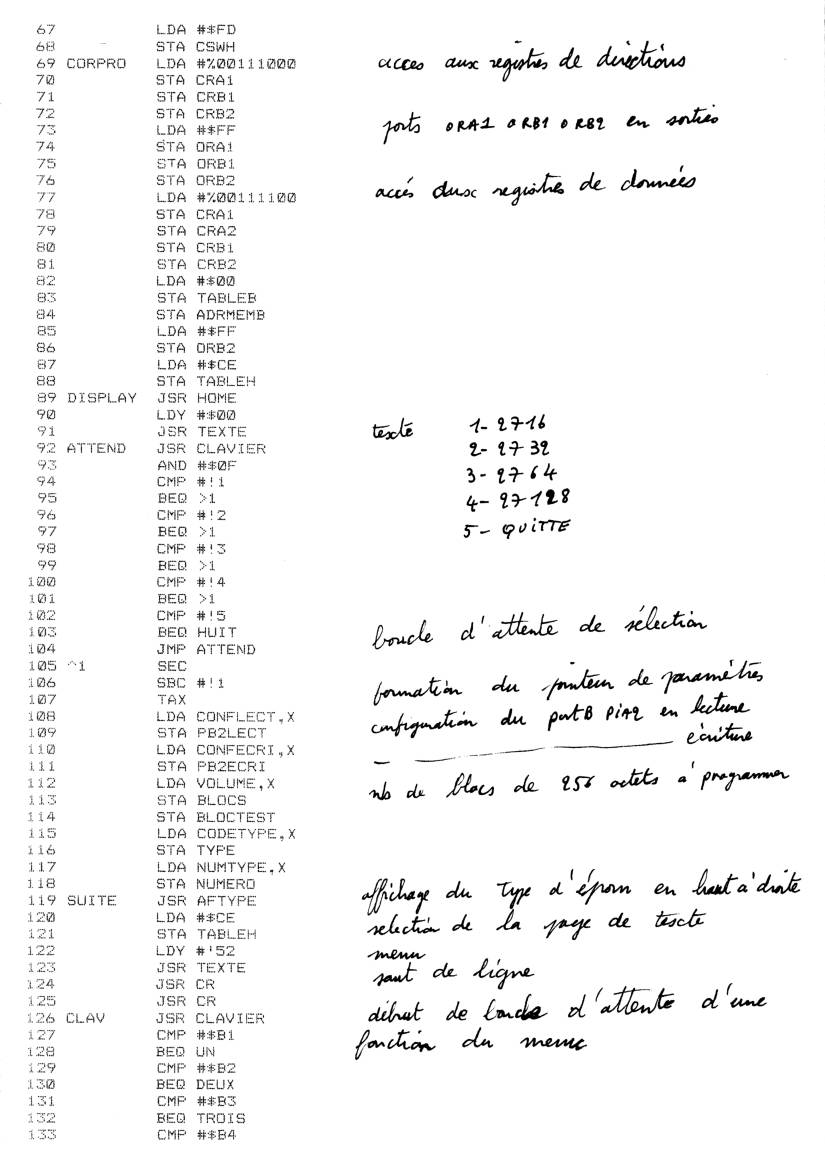 67 LDA #$FD
68 STA CSWH
69 CORPRO LDA #%00111000 acces aux registres de directions
70 STA CRA1
71 STA CRB1
72 STA CRB2
73 LDA #$FF ports ORA1 ORB1 ORB2 en sorties
74 STA ORA1
75 STA ORB1
76 STA ORB2
77 LDA #%00111100 accés dusc registres de données
78 STA CRA1
79 STA CRA2
80 STA CRB1
81 STA CRB2
82 LDA #$00
83 STA TABLEB
84 STA ADRMEMB
85 LDA #$FF
86 STA ORB2
87 LDA #$CE
88 STA TABLEH
89 DISPLAY JSR HOME
90 LDY #$00
91 JSR TEXTE texte 1- 2716
92 ATTEND JSR CLAVIER 2- 2732
93 AND #$0F 3- 2764
94 CMP #!1 4- 27128
95 BEQ >1 5- QUITTE
96 CMP #!2
97 BEQ >1
98 CMP #!3
99 BEQ >1
100 CMP #!4
101 BEQ >1
102 CMP #!5
103 BEQ HUIT boucle d'attente de sélection
104 JMP ATTEND
105 ^1 SEC
106 SBC #!1 formation du pointeur de paramètres
107 TAX
108 LDA CONFLECT,X configuration du port B PIA2 en lecture
109 STA PB2LECT
110 LDA CONFECRI,X écriture
111 STA PB2ECRI
112 LDA VOLUME,X nb de blocs de 256 octets à programmer
113 STA BLOCS
114 STA BLOCTEST
115 LDA CODETYPE,X
116 STA TYPE
117 LDA NUMTYPE,X
118 STA NUMERO
119 SUITE JSR AFTYPE affichage du type d'éprom en haut à droite
120 LDA #$CE selection de la page de texte
121 STA TABLEH
122 LDY #'52 menu
123 JSR TEXTE saut de ligne
124 JSR CR
125 JSR CR
126 CLAV JSR CLAVIER début de boucle d'attente d'une
127 CMP #$B1 fonction du menu
128 BEQ UN
129 CMP #$B2
130 BEQ DEUX
131 CMP #$B3
132 BEQ TROIS
133 CMP #$B4